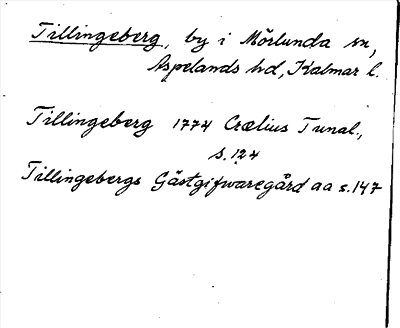 Tillingeberg, by i Mörlunda sn,
Aspelands hd, Kalmar l.
Tillingeberg 1774 Crælius Tunal.,
s. 124
Tillingebergs Gästgifwaregård aa s. 147